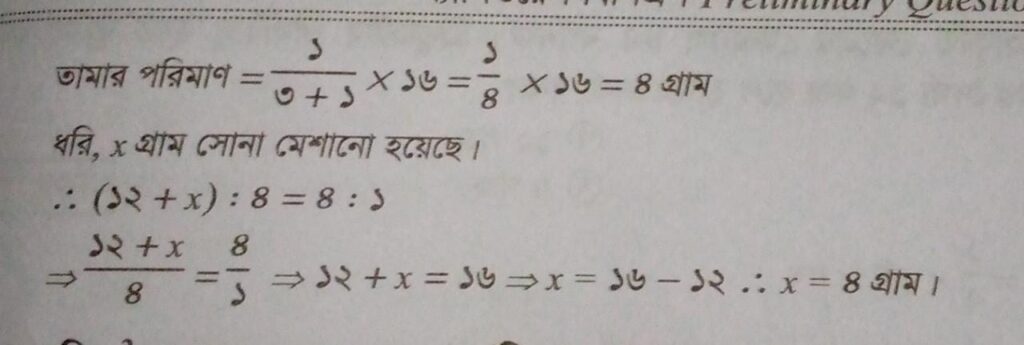 Preliminary
তামার পরিমাণ = ১/(৩ + ১) × ১৬ = ১/৪ × ১৬ = ৪ গ্রাম
ধরি, x গ্রাম সোনা মেশানো হয়েছে।
∴ (১২ + x) : ৪ = ৪ : ১
⇒ (১২ + x)/৪ = ৪/১ ⇒ ১২ + x = ১৬ ⇒ x = ১৬ − ১২ ∴ x = ৪ গ্রাম।